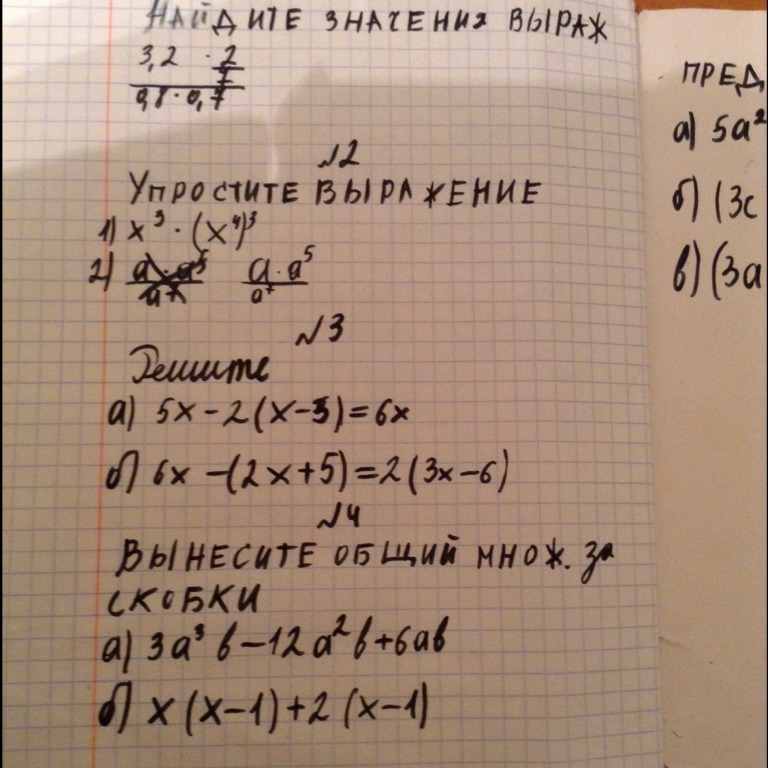 НАЙДИТЕ ЗНАЧЕНИЯ ВЫРАЖ
3,2 · 2
0,8 · 0,7
№2
УПРОСТИТЕ ВЫРАЖЕНИЕ
1) x³ · (x⁴)³
2) a · a⁵
a⁷
№3
Решите
а) 5x - 2(x-3) = 6x
б) 6x - (2x+5) = 2(3x-6)
№4
ВЫНЕСИТЕ ОБЩИЙ МНОЖ. За
СКОБКИ
а) 3a³b - 12a²b + 6ab
б) x(x-1) + 2(x-1)
ПРЕД
а) 5a²
б) (3c
в) (3a